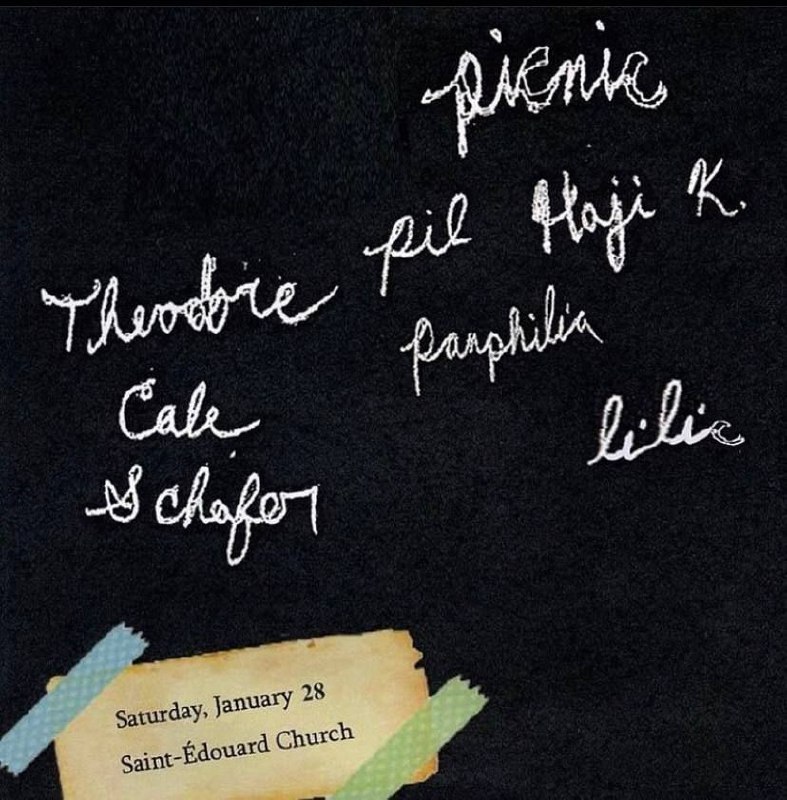 picnic
pil Haji K.
Theodore
Cale
Schafer
panphilia
lilic
Saturday, January 28
Saint-Édouard Church